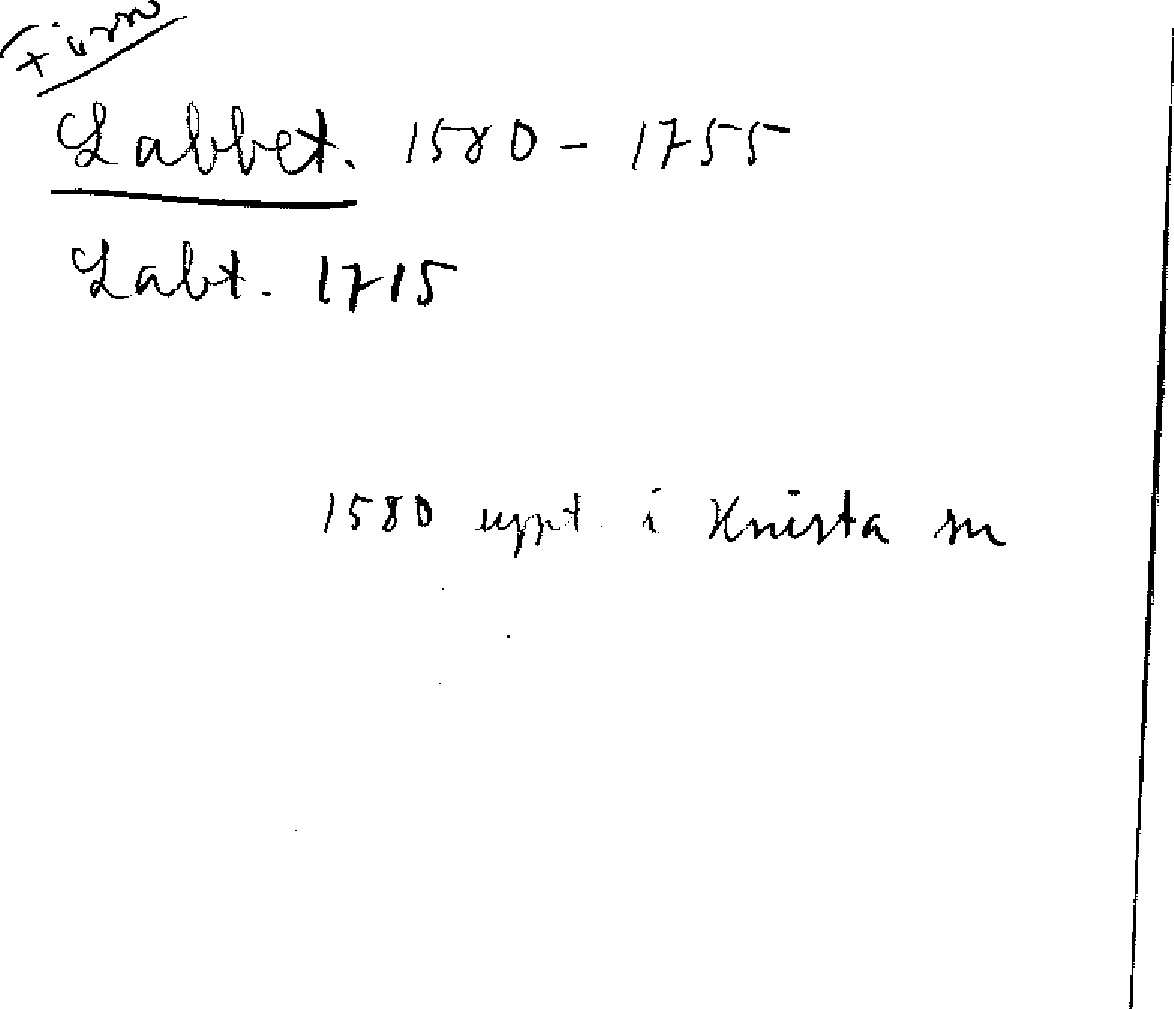 Labbet. 1580 - 1755
Labt. 1715
1580 uppt. i Knista sn